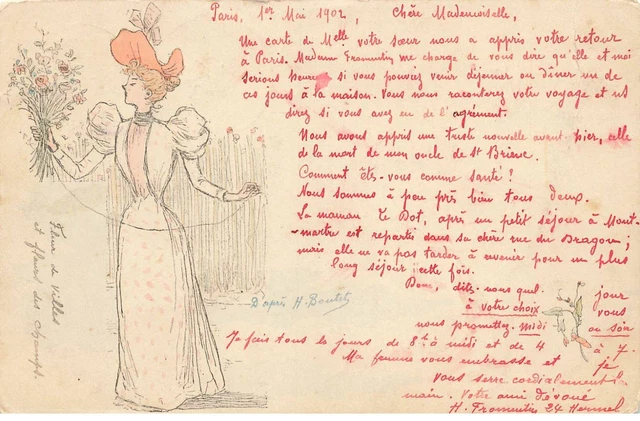 Paris, 1er Mai 1902, Chère Mademoiselle,
Une carte de Melle votre sœur nous a appris votre retour
à Paris. Madame Fromentin me charge de vous dire qu'elle et moi
serions heureux si vous pouviez venir déjeuner ou dîner un de
ces jours à la maison. Vous nous raconterez votre voyage et ns
direz si vous avez eu de l'agrément.
Nous avons appris une triste nouvelle avant-hier, celle
de la mort de mon oncle de St Brieuc.
Comment êtes-vous comme santé ?
Nous sommes à peu près bien tous deux.
La maman Le Bot, après un petit séjour à Mont-
-martre est repartie dans sa chère rue du Dragon ;
mais elle ne va pas tarder à revenir pour un plus
long séjour cette fois.
Donc, dites-nous quel jour
à votre choix vous
nous promettez. midi ou soir
Je fais tous les jours de 8h à midi et de 4 à 7.
Ma femme vous embrasse et je
vous serre cordialement la
main. Votre ami dévoué
H. Fromentin 24 Hermel
D'après H. Boutet
Fleur de villes
et fleur des champs